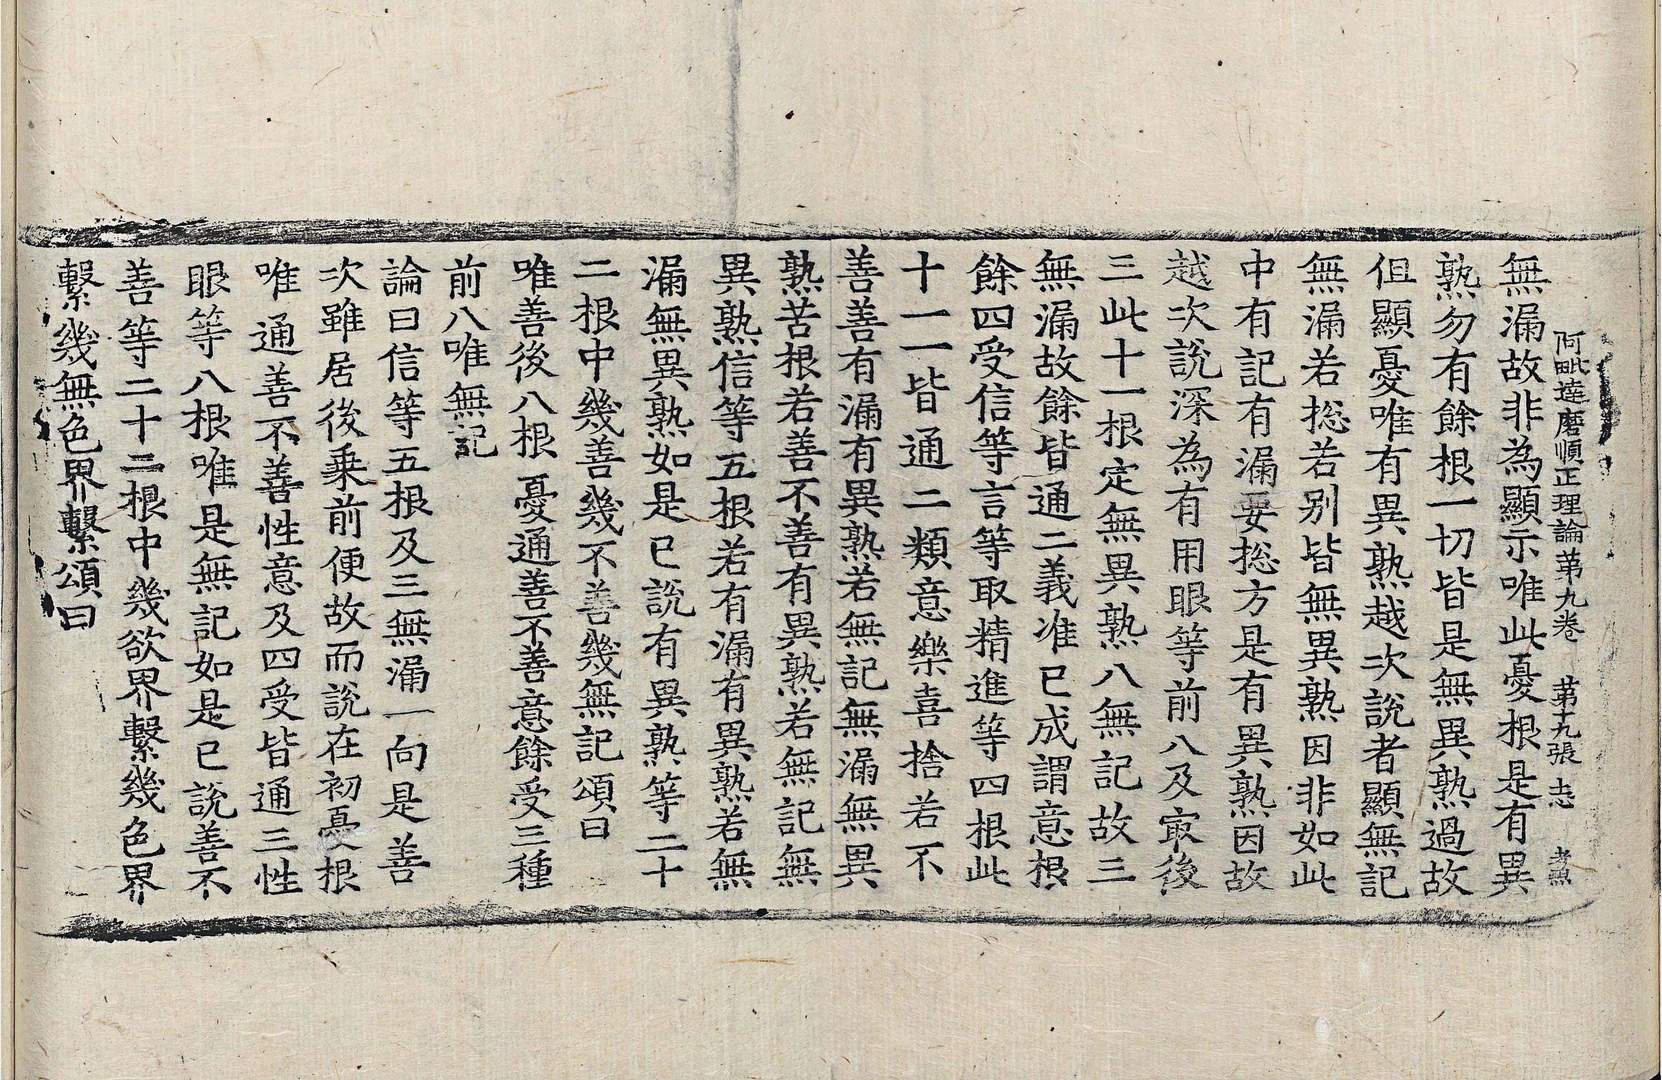 阿毗達磨順正理論苐九卷　苐十九張　志
無漏故非為顯示唯此憂根是有異
熟勿有餘根一切皆是無異熟過故
但顯憂唯有異熟越次說者顯無記
無漏若捴若别皆無異熟因非如此
中有記有漏要捴方是有異熟因故
越次說深為有用眼等前八及㝡後
三此十一根定無異熟八無記故三
無漏故餘皆通二義准已成謂意根
餘四受信等言等取精進等四根此
十一一皆通二類意樂喜捨若不
善善有漏有異熟若無記無漏無異
熟苦根若善不善有異熟若無記無
異熟信等五根若有漏有異熟若無
漏無異熟如是已說有異熟等二十
二根中幾善幾不善幾無記頌曰
唯善後八根　憂通善不善意餘受三種
前八唯無記
論曰信等五根及三無漏一向是善
次雖居後乗前便故而說在初憂根
唯通善不善性意及四受皆通三性
眼等八根唯是無記如是已說善不
善等二十二根中幾欲界繫幾色界
繫幾無色界繫頌曰